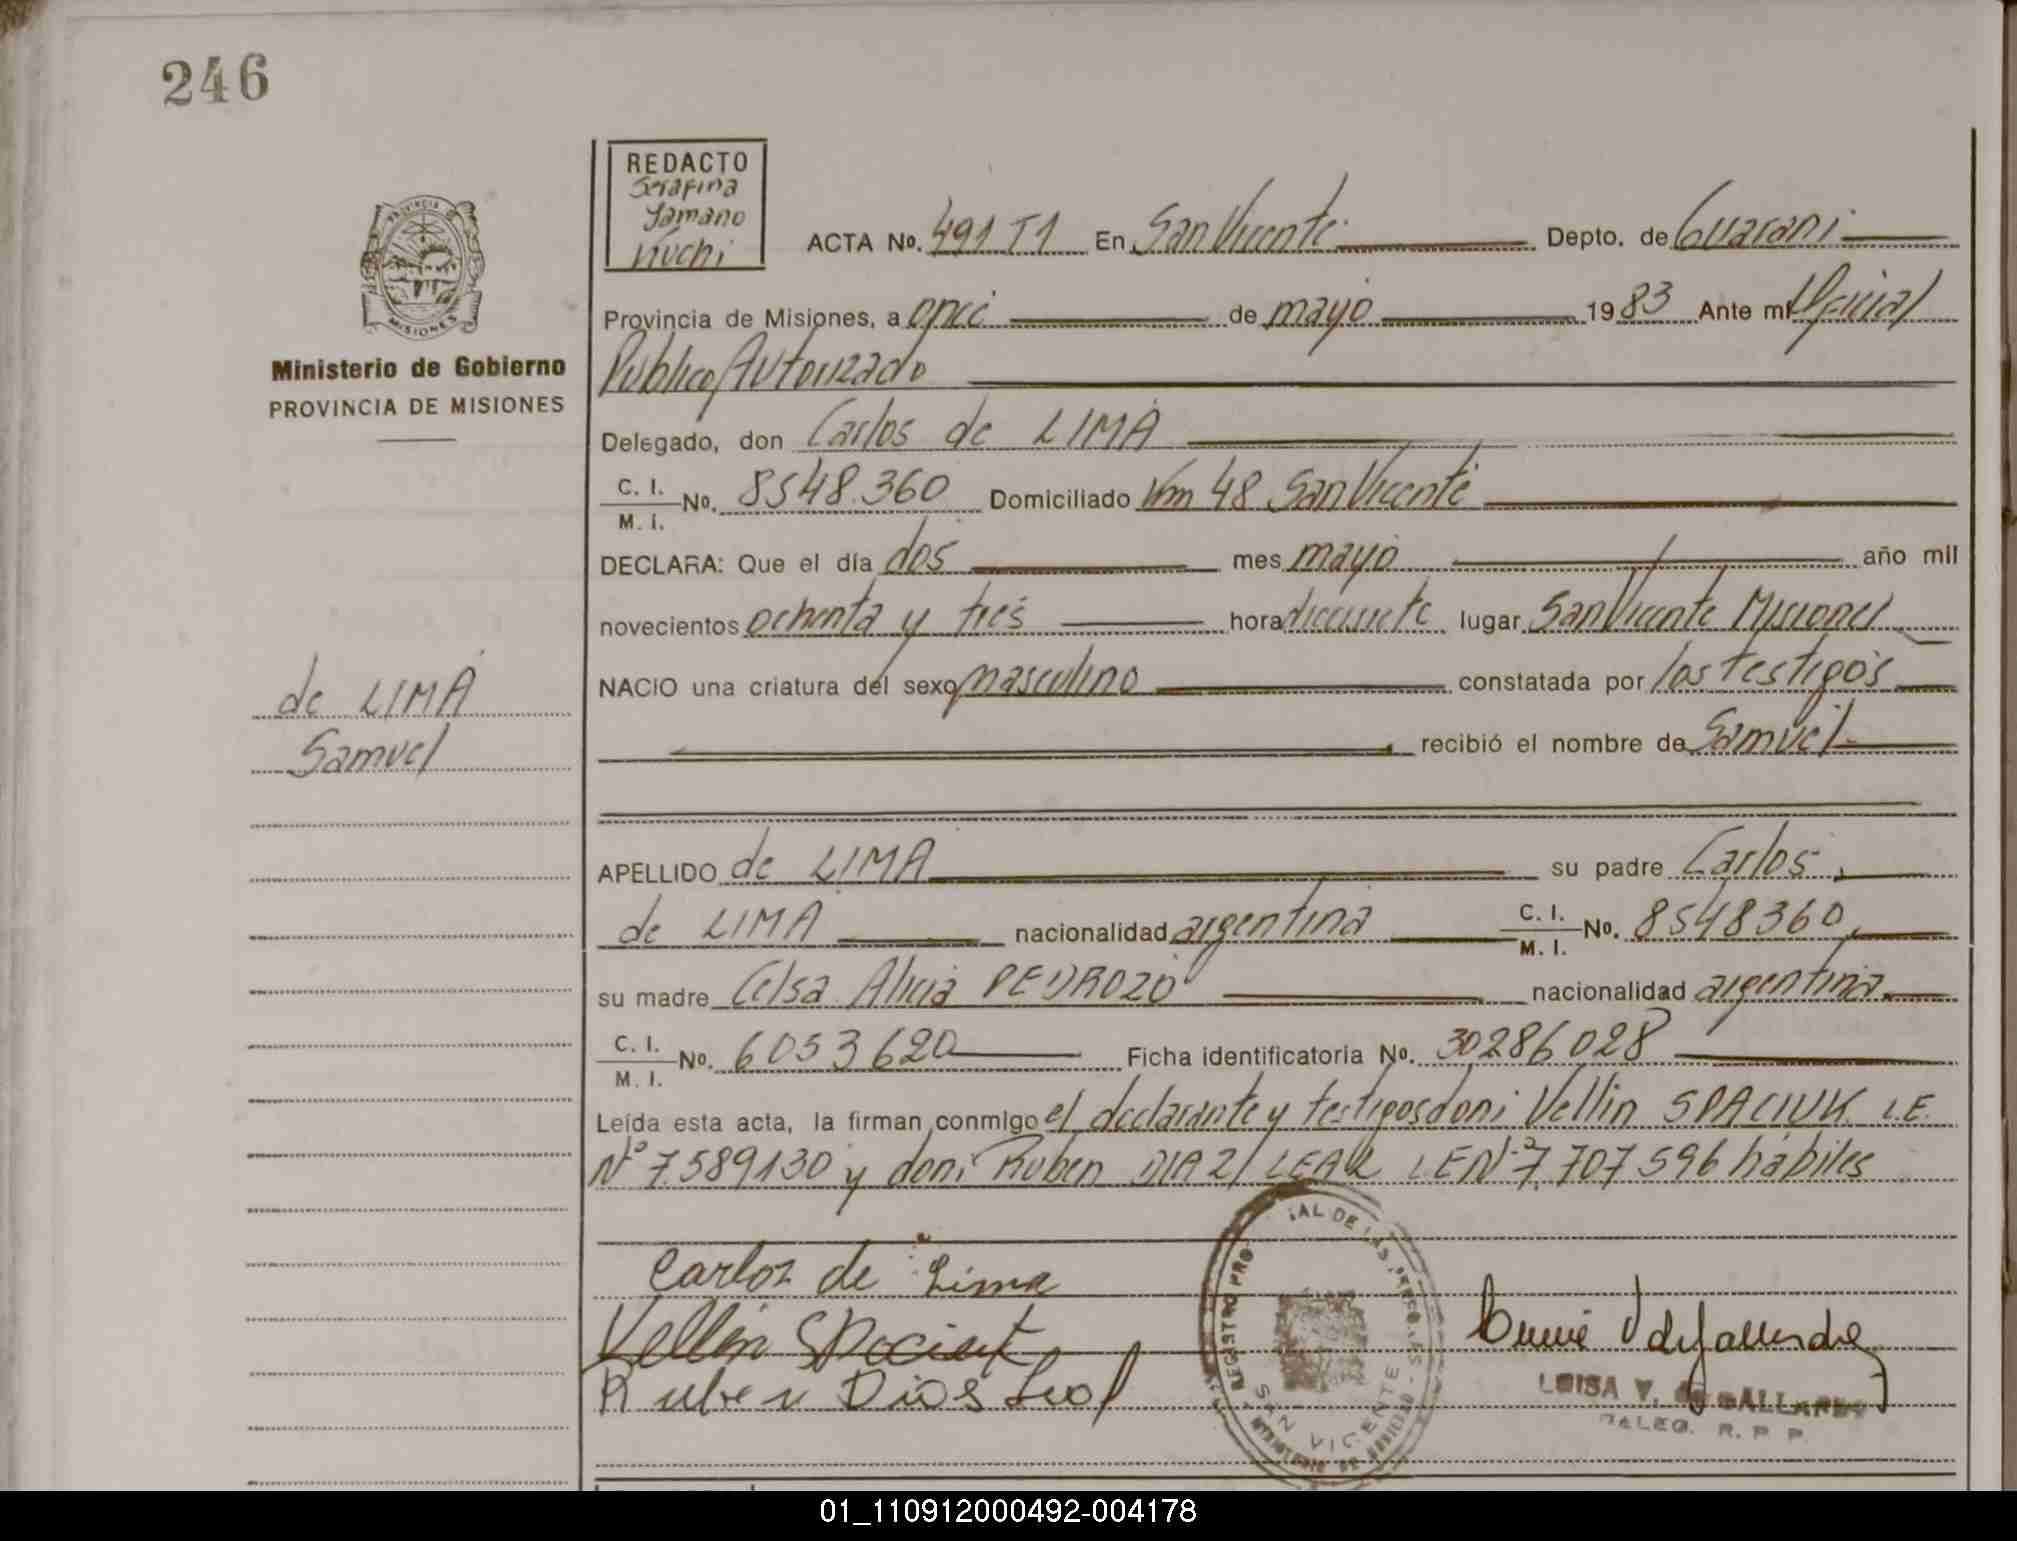 246
REDACTO
Serafina
Yamano
Kuchi
ACTA No. 491 T1 En San Vicente Depto. de Guarani
PROVINCIA DE
MISIONES
Provincia de Misiones, a once de mayo 1983 Ante mí Oficial
Ministerio de Gobierno
Publico Autorizado
PROVINCIA DE MISIONES
Delegado, don Carlos de LIMA
C. I.
M. I. No. 8548.360 Domiciliado Km 48 San Vicente
DECLARA: Que el día dos mes mayo año mil
novecientos ochenta y tres hora diecisiete lugar San Vicente Misiones
NACIO una criatura del sexo masculino constatada por los testigos
de LIMA
Samuel
recibió el nombre de Samuel
APELLIDO de LIMA su padre Carlos
de LIMA nacionalidad argentina C. I. M. I. No. 8548360
su madre Celsa Alicia PEDROZO nacionalidad argentina
C. I.
M. I. No. 6053620 Ficha identificatoria No. 30286028
Leída esta acta, la firman conmigo el declarante y testigos doni Vellin SPACIUK L.E.
Nº 7.589130 y doni Ruben DIAZ LEAL LE Nº 7.707596 hábiles
Carloz de Lima
Vellin
Ruben Dias Leal
REGISTRO
DE LAS PERSONAS
SAN VICENTE
LUISA V. DE GALLARDO
DELEG. R. P. P.
01_110912000492-004178